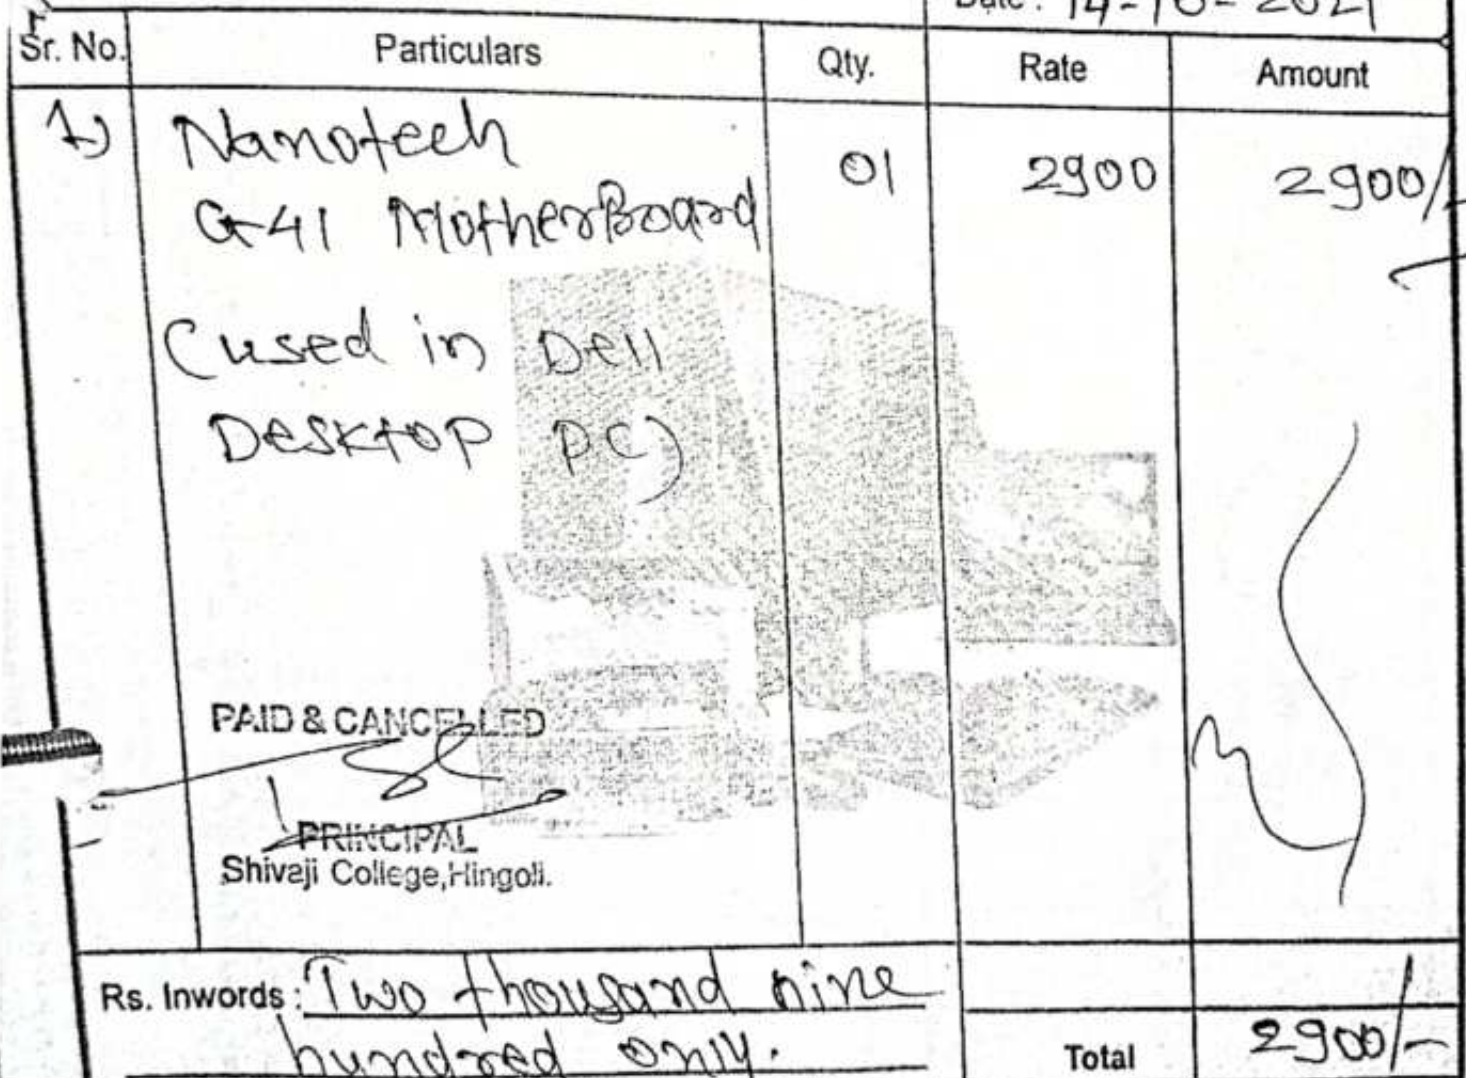 Date : 14-10-2021
Sr. No. Particulars Qty. Rate Amount
1) Nanotech 01 2900 2900/-
G-41 MotherBoard
(used in Dell
Desktop PC)
PAID & CANCELLED
PRINCIPAL
Shivaji College,Hingoli.
Rs. Inwords : Two thousand nine
hundred only.
Total 2900/-